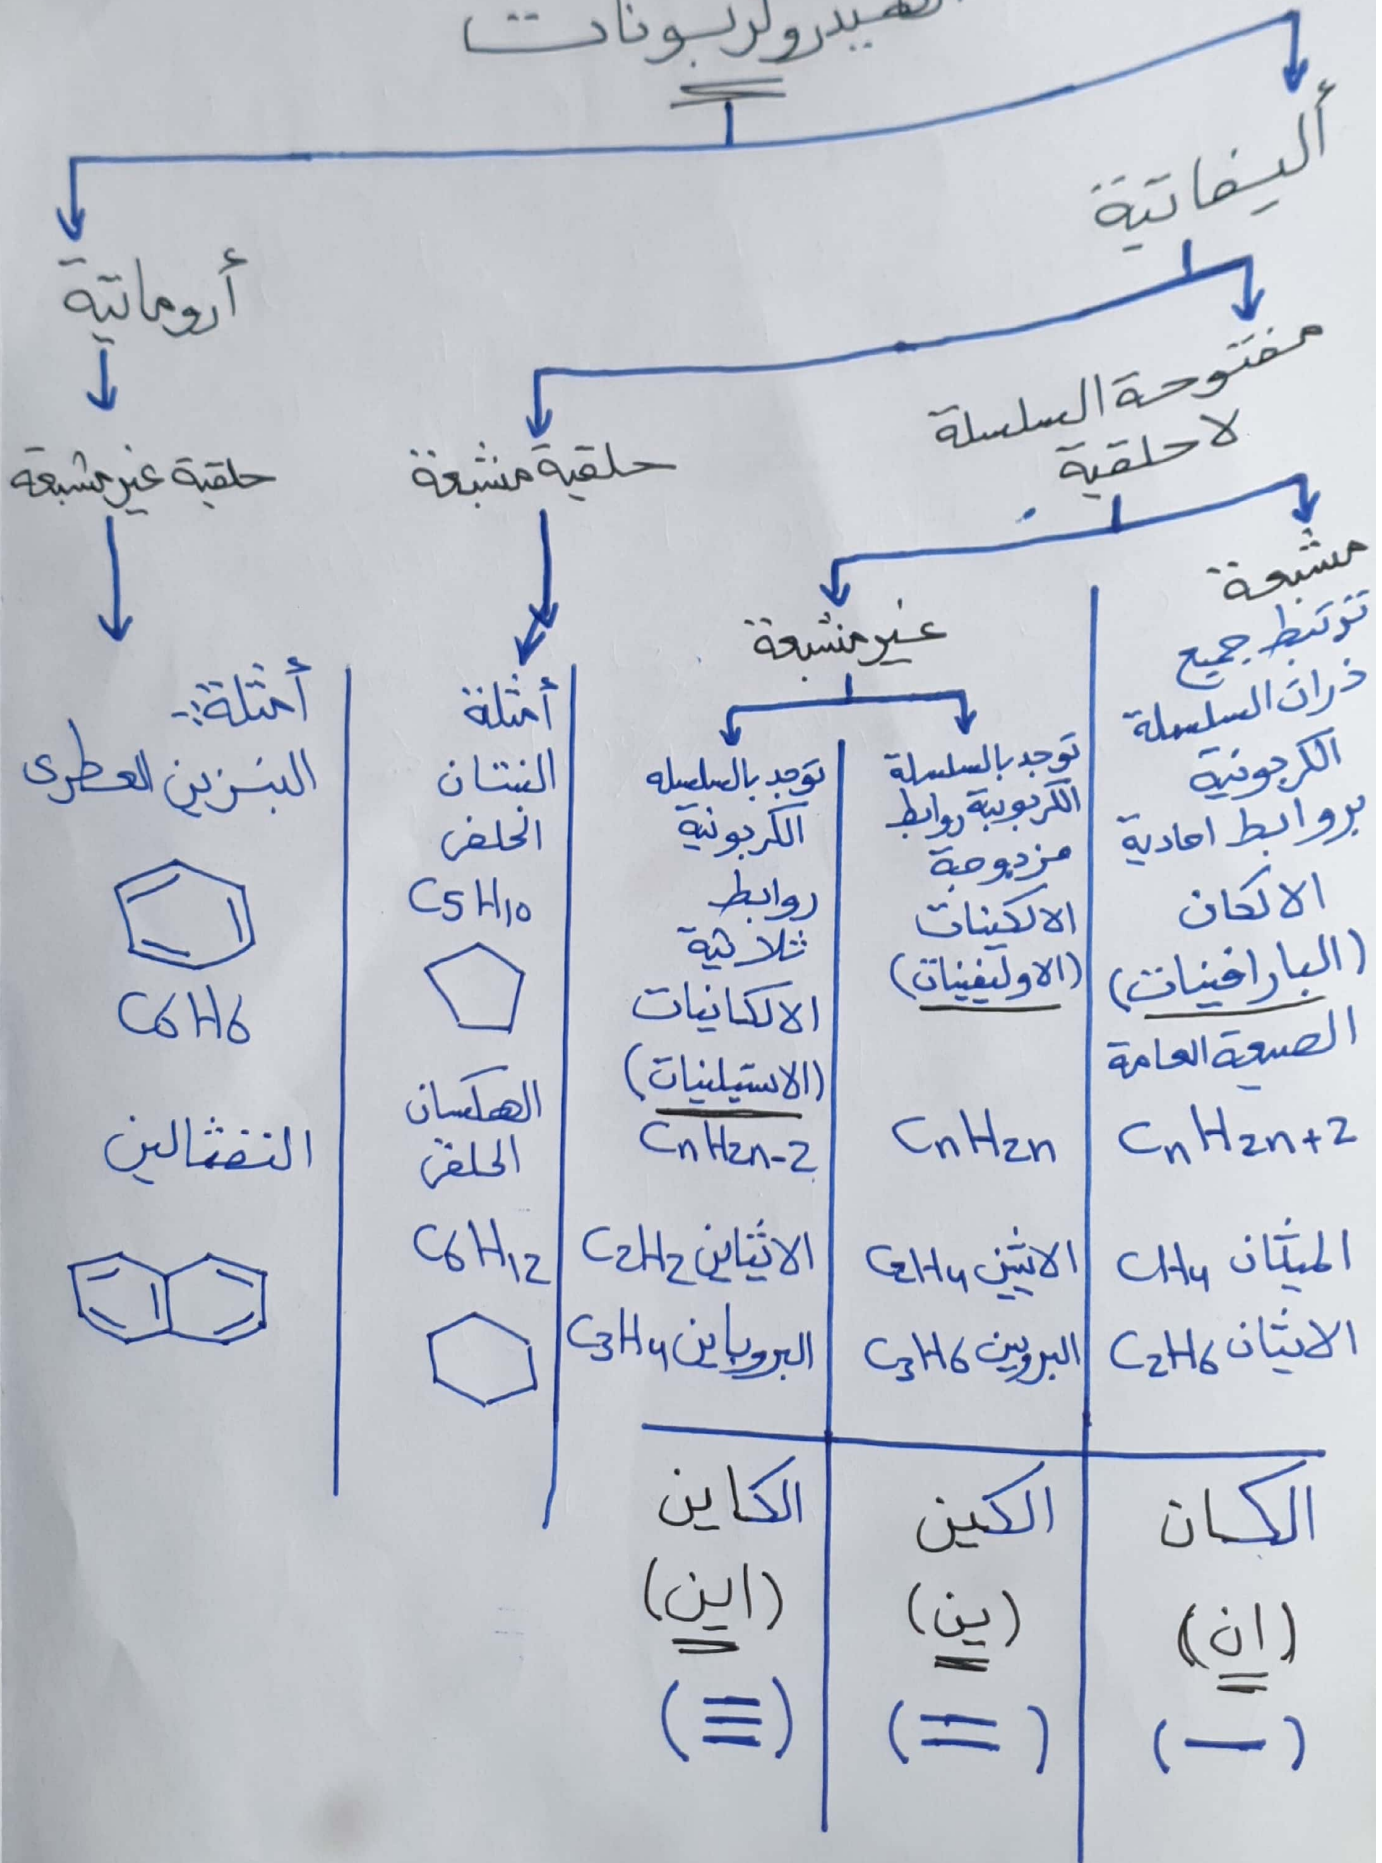 الهيدروكربونات
أليفاتية
أروماتية
مفتوحة السلسلة
لا حلقية
حلقية مشبعة
حلقية غير مشبعة
مشبعة
ترتبط جميع
ذرات السلسلة
الكربونية
بروابط احادية
الالكان
(البارافينات)
الصيعة العامة
CnH2n+2
الميثان CH4
الايثان C2H6
غير مشبعة
توجد بالسلسلة
الكربونية روابط
مزدوجة
الالكينات
(الاوليفينات)
CnH2n
الاثيين C2H4
البروبين C3H6
توجد بالسلسله
الكربونية
روابط
ثلاثية
الالكاينات
(الاستيلينيات)
CnH2n-2
الايثاين C2H2
البروباين C3H4
أمثلة
البنتان
الحلقى
C5H10
الهكسان
الحلقى
C6H12
أمثلة:-
البنزين العطرى
C6H6
النفثالين
الكان
(ان)
(—)
الكين
(ين)
(=)
الكاين
(اين)
(≡)